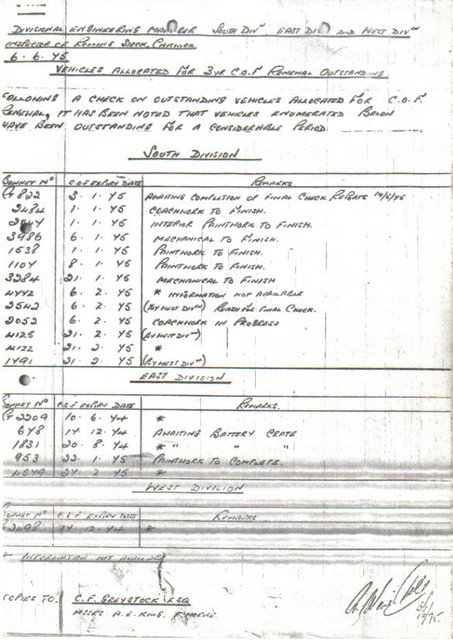 DIVISIONAL ENGINEERING MANAGER SOUTH DIVN EAST DIVN AND WEST DIVN
INSPECTOR OF ROLLING STOCK, CHISWICK
6. 6. 45
VEHICLES ALLOCATED FOR 3YR C.O.F RENEWAL OUTSTANDING
FOLLOWING A CHECK ON OUTSTANDING VEHICLES ALLOCATED FOR C.O.F.
RENEWAL, IT HAS BEEN NOTED THAT VEHICLES ENUMERATED BELOW
HAVE BEEN OUTSTANDING FOR A CONSIDERABLE PERIOD
SOUTH DIVISION
BONNET NO C.O.F EXPIRY DATE REMARKS
822 3. 1. 45 AWAITING COMPLETION OF FINAL CHECK
2484 1. 1. 45 COACHWORK TO FINISH.
1. 1. 45 INTERIOR PAINTWORK TO FINISH.
3986 6. 1. 45 MECHANICAL TO FINISH.
1538 1. 45 PAINTWORK TO FINISH.
1104 8. 1. 45 PAINTWORK TO FINISH.
3284 21. 1. 45 MECHANICAL TO FINISH
4442 6. 2. 45 * INFORMATION NOT AVAILABLE
2542 6. 2. 45 (BY WEST DIVN) READY FOR FINAL CHECK.
2052 6. 2. 45 COACHWORK IN PROGRESS
4125 21. 2. 45 (BY WEST DIVN)
4122 21. 2. 45 *
1491 21. 2. 45 (BY WEST DIVN)
EAST DIVISION
BONNET NO C.O.F EXPIRY DATE REMARKS.
2209 10. 6. 44 *
648 14 12. 44 AWAITING BATTERY CRATE
1831 20. 8. 44 * " "
953 22. 1. 45 PAINTWORK TO COMPLETE.
24 2 45 *
WEST DIVISION
BONNET NO C.O.F EXPIRY DATE REMARKS
14 12. 44 *
* INFORMATION NOT AVAILABLE
COPIES TO. C.F. GREYSTOCK ESQ
MESSRS A.E. KING,